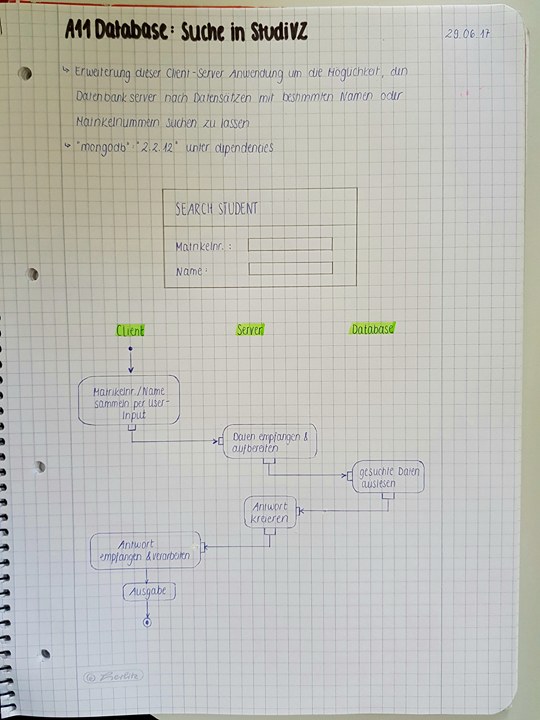 A11 Database: Suche in StudiVZ
29.06.17
↳ Erweiterung dieser Client-Server Anwendung um die Möglichkeit, den
Datenbankserver nach Datensätzen mit bestimmten Namen oder
Matrikelnummern suchen zu lassen
↳ "mongodb": "2.2.12" unter dependencies
SEARCH STUDENT
Matrikelnr.:
Name:
Client Server Database
Matrikelnr./Name
sammeln per User-
Input
Daten empfangen &
aufbereiten
gesuchte Daten
auslesen
Antwort
kreieren
Antwort
empfangen & verarbeiten
Ausgabe